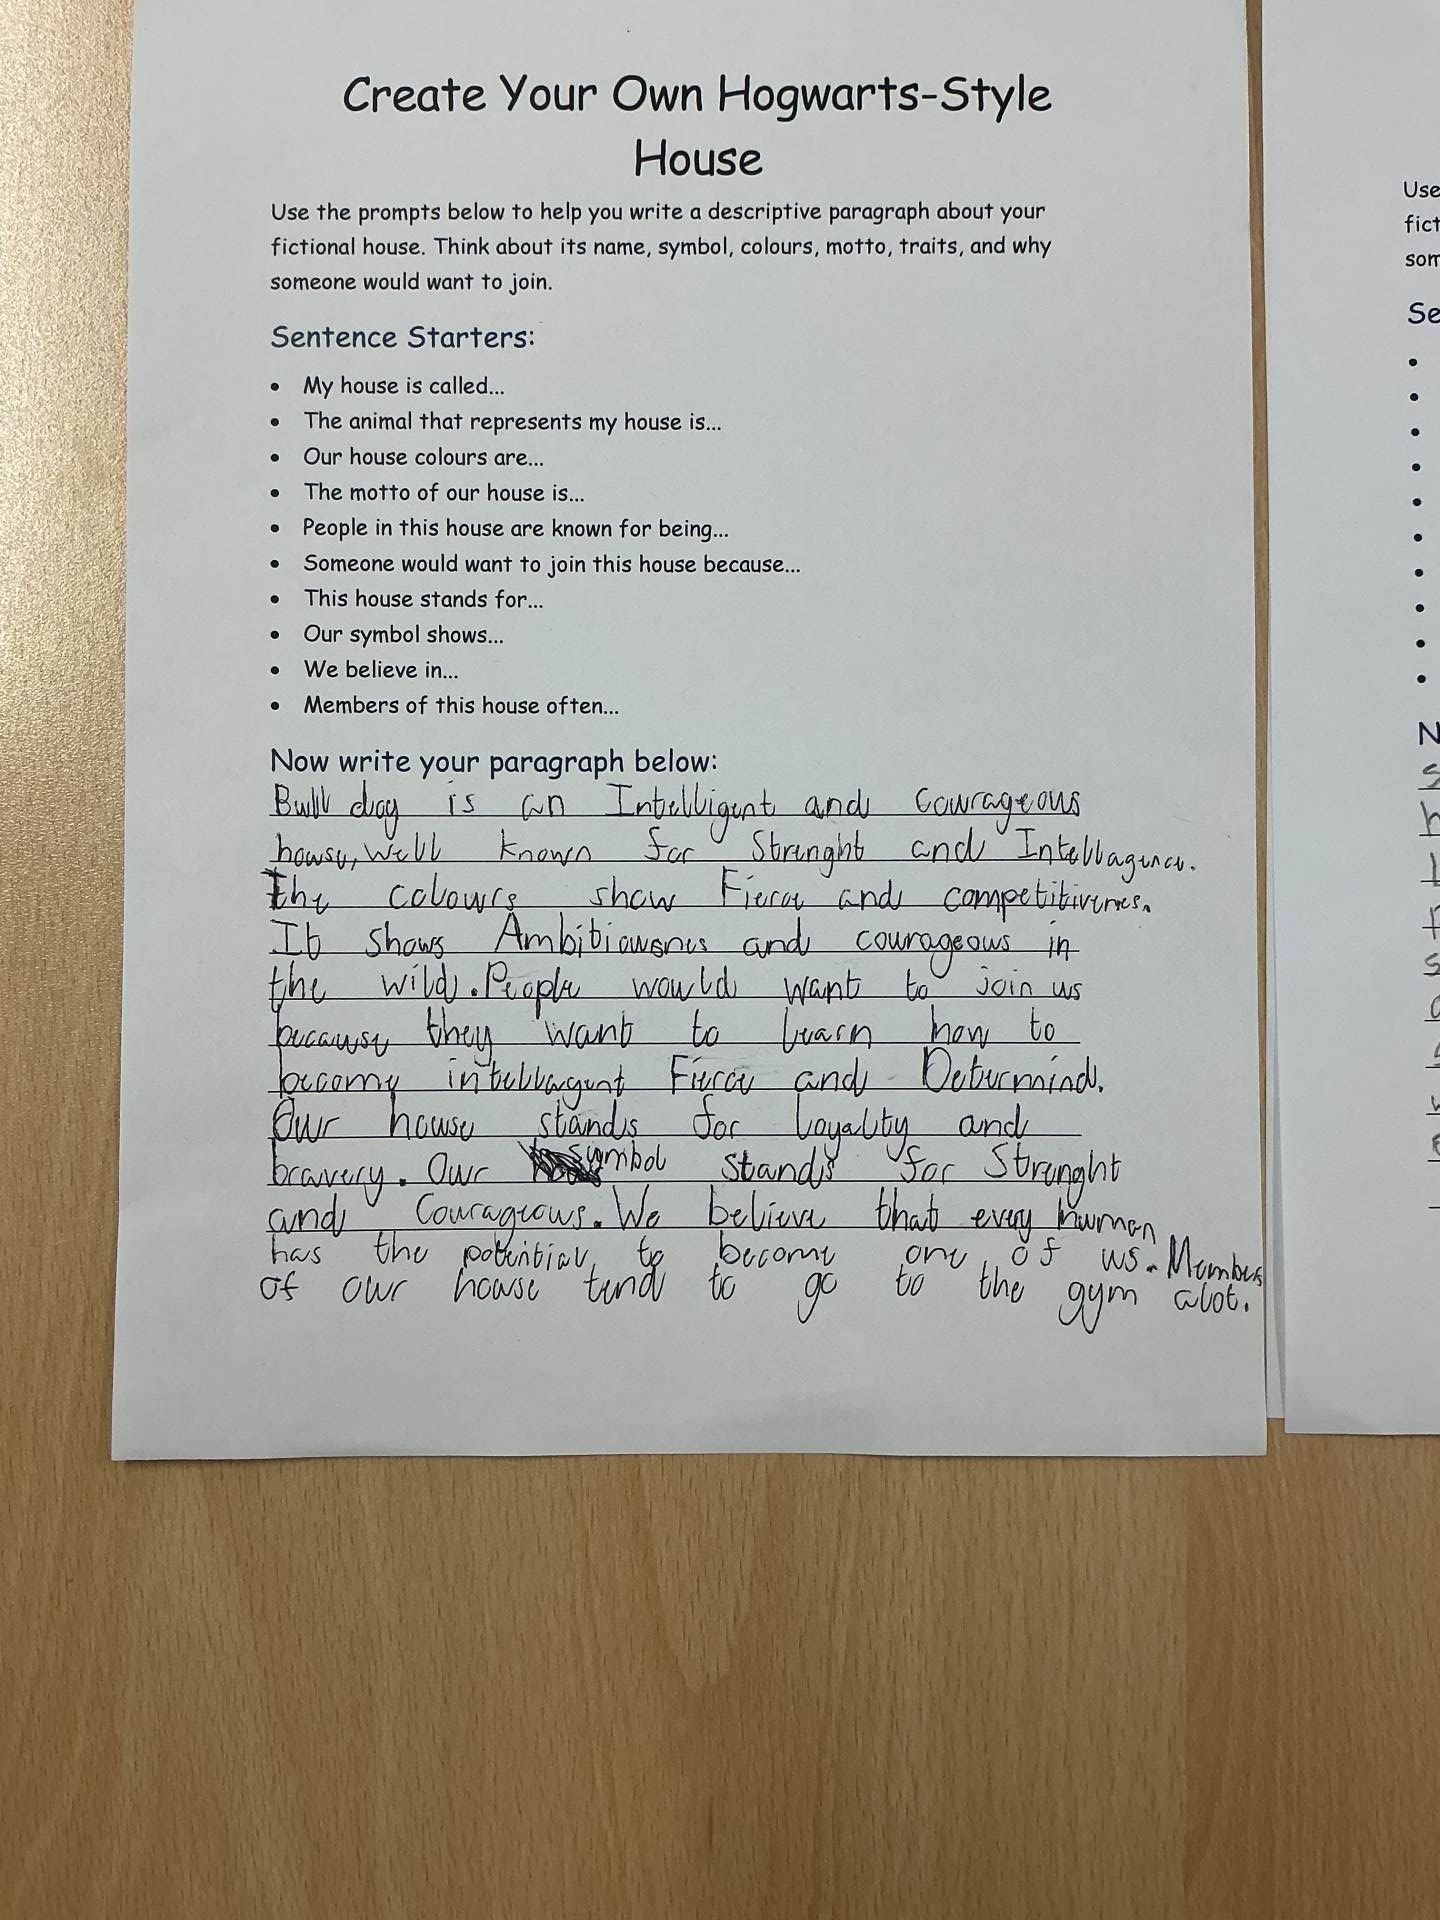 Create Your Own Hogwarts-Style
House
Use the prompts below to help you write a descriptive paragraph about your
fictional house. Think about its name, symbol, colours, motto, traits, and why
someone would want to join.
Sentence Starters:
• My house is called...
• The animal that represents my house is...
• Our house colours are...
• The motto of our house is...
• People in this house are known for being...
• Someone would want to join this house because...
• This house stands for...
• Our symbol shows...
• We believe in...
• Members of this house often...
Now write your paragraph below:
Bull dog is an Intelligent and Courageous
house, well known for Strenght and Intellagence.
The colours show Fierce and competitivenes.
It shows Ambitiousnes and courageous in
the wild. People would want to join us
because they want to learn how to
become intellagent Fierce and Determind.
Our house stands for loyality and
bravery. Our symbol stands for Strenght
and Courageous. We believe that every human
has the potential to become one of us. Members
of our house tend to go to the gym alot.
Use
fict
som
Se